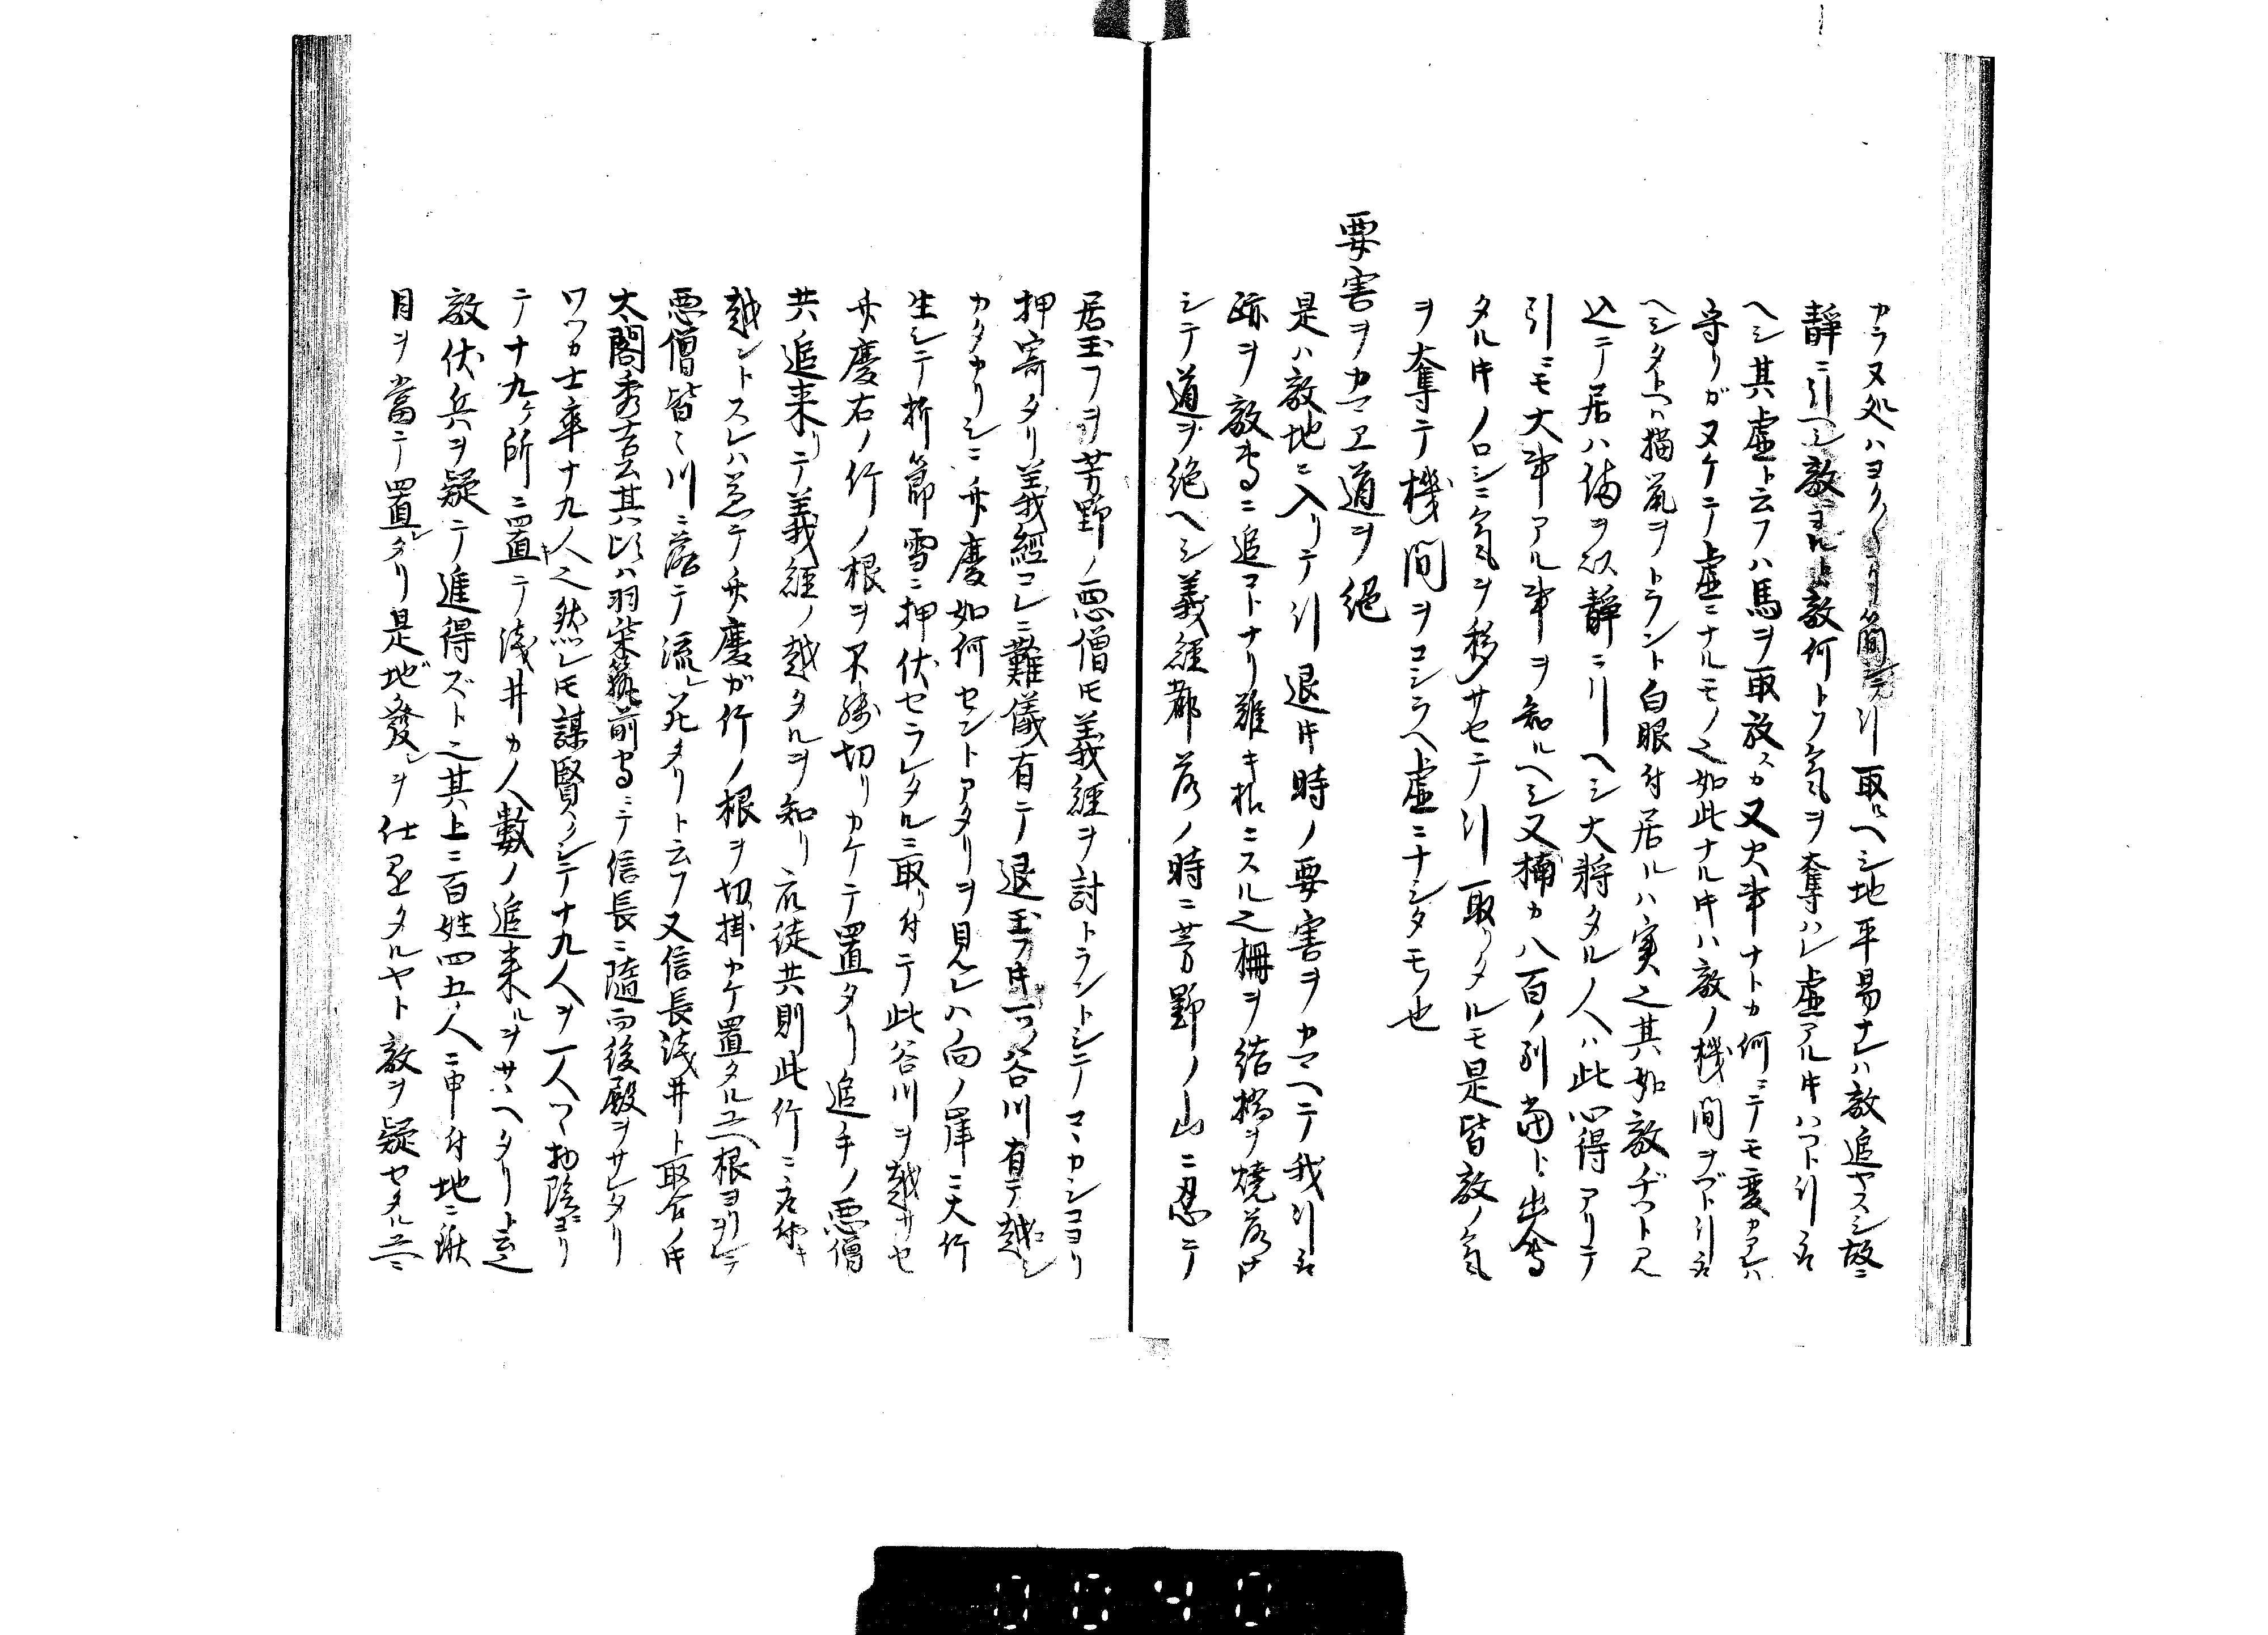 カラヌ処ハヨク〱簡引取ヘシ地平易ナレハ敵追ヤスシ故ニ
静ニ引ヘシ敵ヨルト敵何トソ気ヲ奪ハレ虚アル时ハハツト引取
ヘシ其虚ト云フハ馬ヲ取放スカ又火事ナトカ何ニテモ変カアレハ
守リガヌケテ虚ニナルモノ之如此ナル时ハ敵ノ機間ヲ引取
ヘシタトヘハ猫鼠ヲトラント白眼付居ルハ実之其如敵チツトハ
込テ居ハ備ヲ以静ニ引ヘシ大将タル人ハ此心得アリテ
引ニモ大事アル事ヲ知ルヘシ又楠カ八百ノ出合
タル时ノロシニ気ヲ移サセテ引取リタルモ是皆敵ノ気
ヲ奪テ機間ヲコシラヘ虚ニナシタモノ也
要害ヲカマヱ道ヲ絶
是ハ敵地ニ入リテ引退时時ノ要害ヲカマヘテ我引取
跡ヲ敵ニ追コトナリ難キ様ニスル之柵ヲ結橋ヲ焼落シ
シテ道ヲ絶ヘシ義経都落ノ時ニ芳野ノ山ニ忍テ
居玉フヲ芳野ノ悪僧𪜈義経ヲ討トラントシテマヽカシコヨリ
押寄タリ義経コレニ難儀有テ退玉フ时一ツノ谷川有テ越シ
カタカリシニ弁慶如何セントアタリヲ見レハ向ノ岸ニ大竹
生シテ折節雪ニ押伏セラレタルニ取リ付テ此谷川ヲ越サセ
弁慶右ノ竹ノ根ヲ不残切リカケテ置タリ追手ノ悪僧
共追来リテ義経ノ越タルヲ知リ衆徒共則此竹ニ取付キ
越ントスレハ兼テ弁慶ガ竹ノ根ヲ切掛カケ置タルユヘ根ヨリヲレテ
悪僧皆〻川ニ落テ流レ死タリト云フ又信長浅井ト取合ノ时
太閤秀吉公其比ハ羽柴筑前守ニテ信長ニ随而後殿ヲサレタリ
ワツカ士卒十九人之然レ𪜈謀賢クシテ十九人ヲ一人ツヽ物陰ヨリ
テ十九ケ所ニ置テ浅井カ人数ノ追来ルヲサヽヘタリト云之
敵伏兵ヲ疑テ進得ズト之其上ニ百姓四五人ニ申付地ニ鍬
目ヲ當テ置タリ是地発ヲ仕リタルヤト敵ヲ疑セタルユヘニ